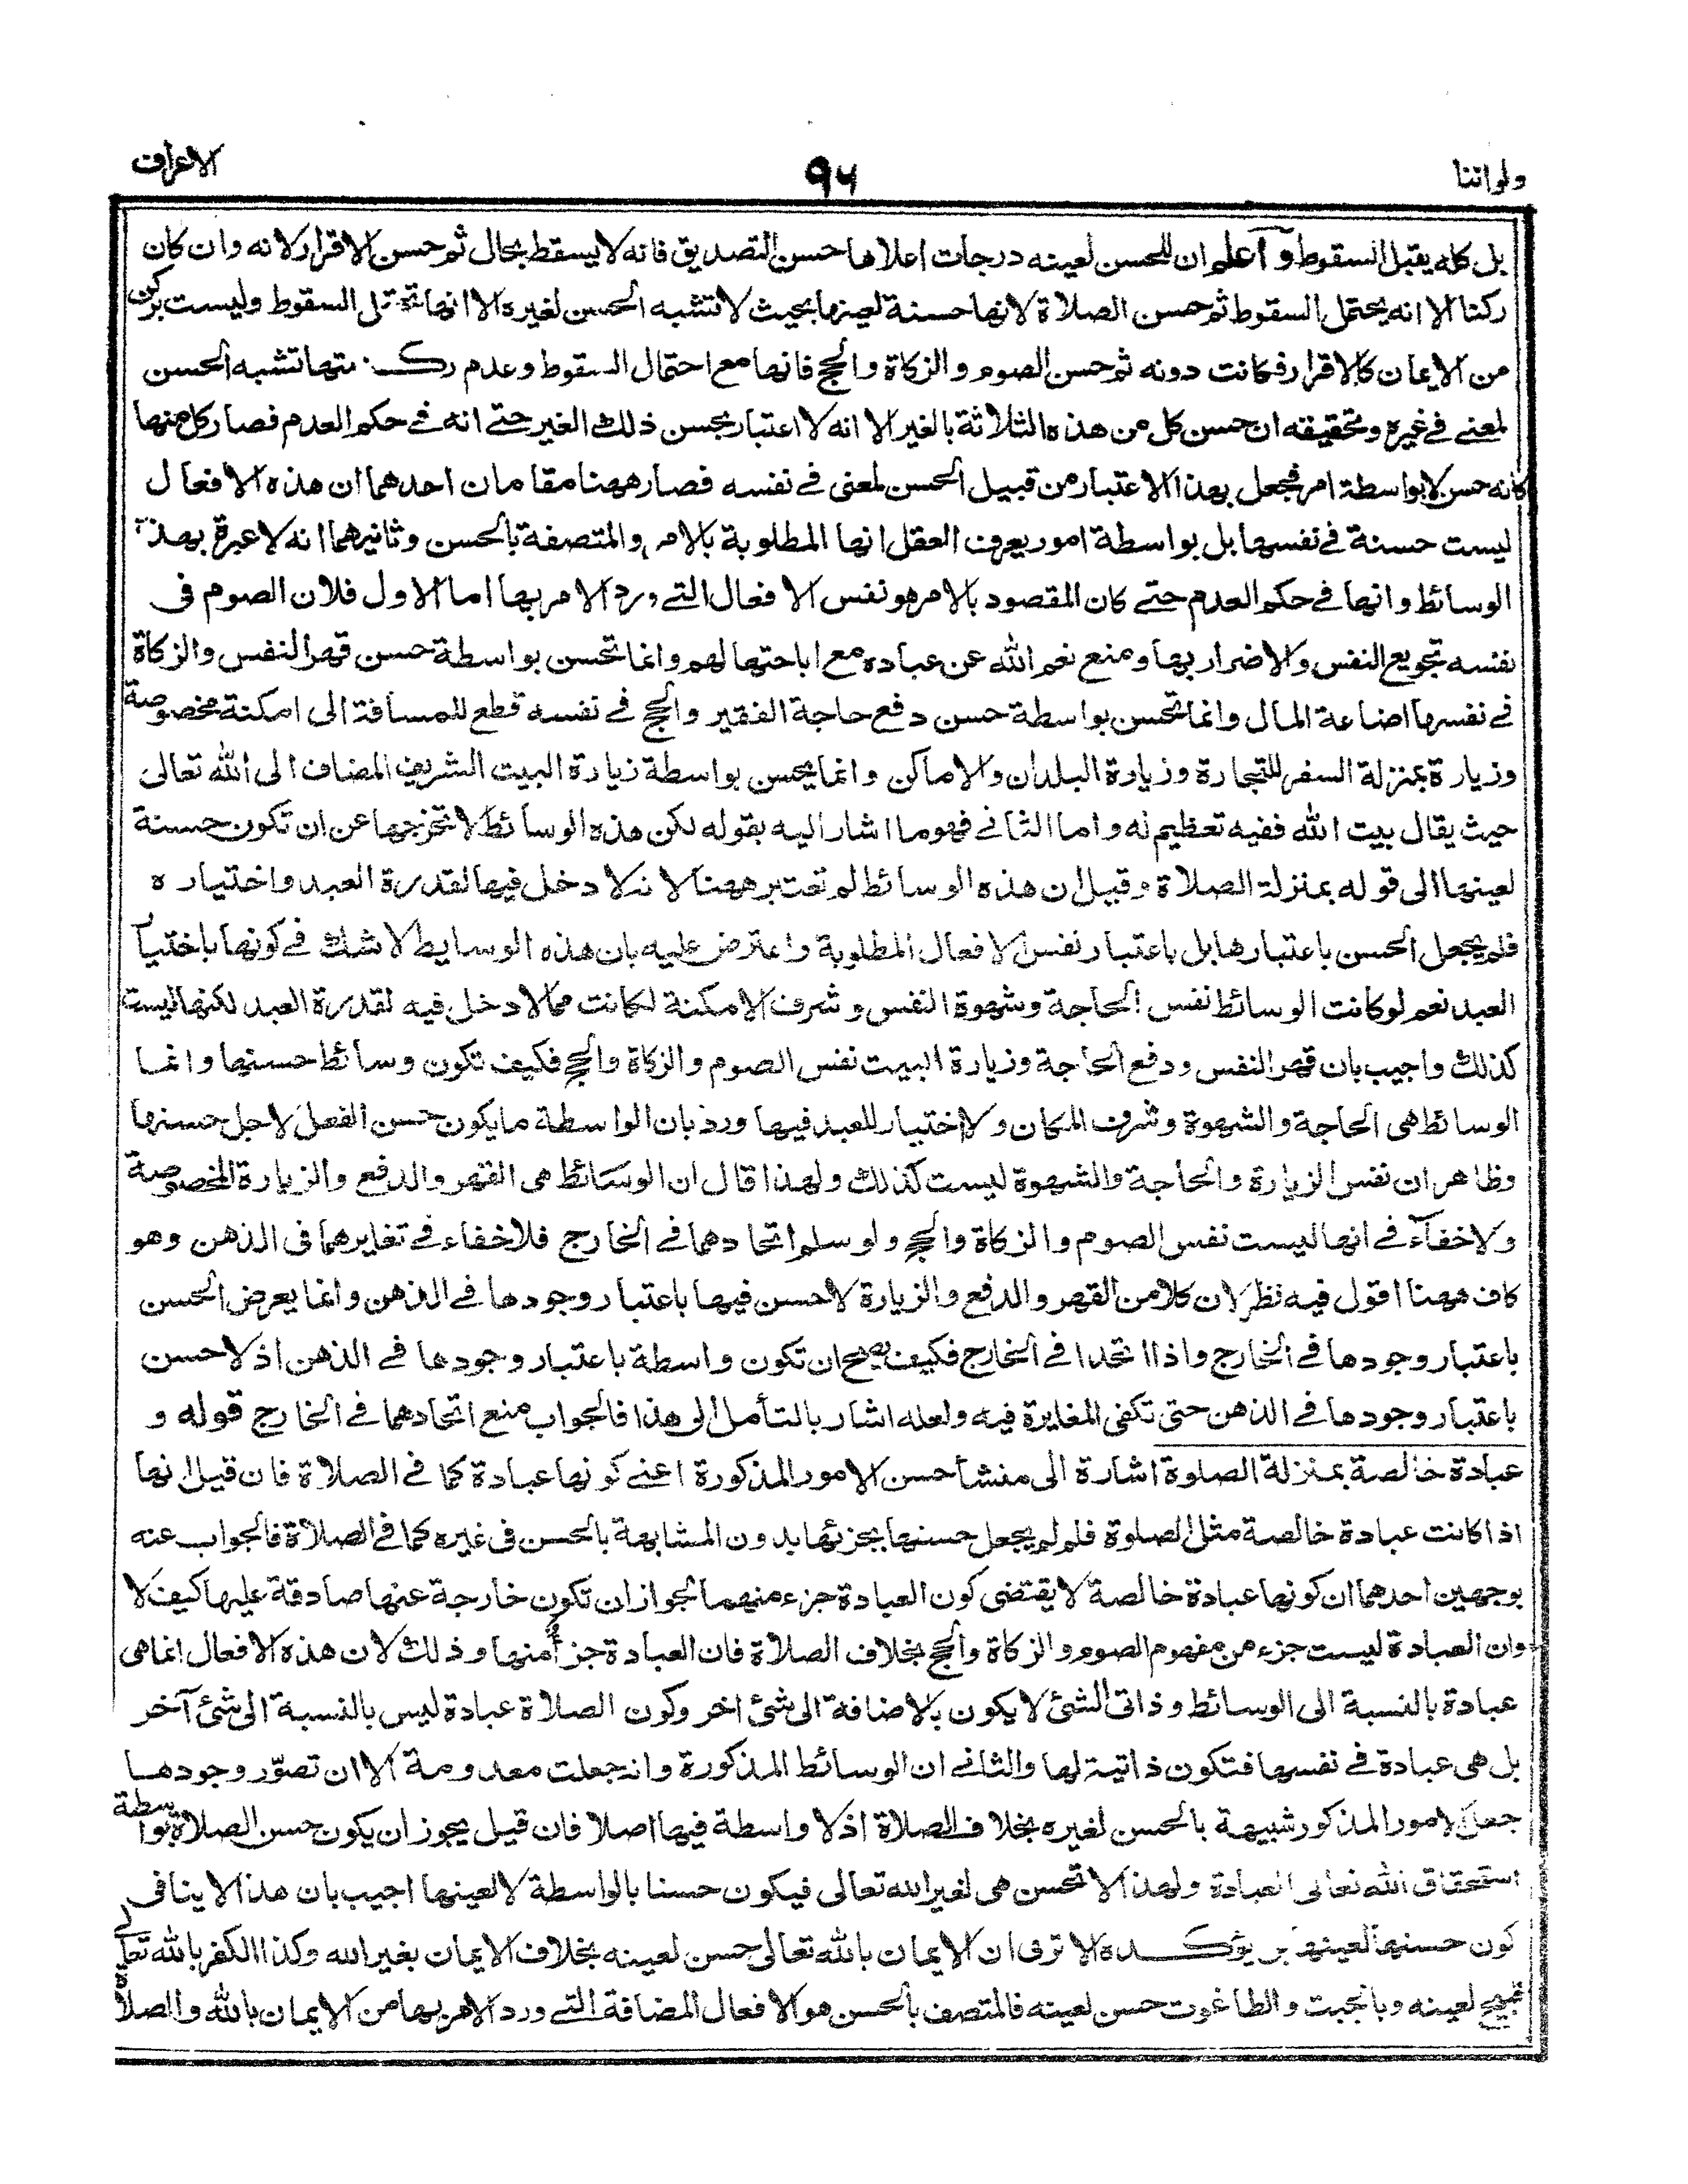 ولواننا ٩٤ الاعراف
بل كله يقبل السقوط و اعلم ان للحسن لعينه درجات اعلاها حسن التصديق فانه لا يسقط بحال ثم حسن الاقرار لانه وان كان
ركنا الا انه يحتمل السقوط ثم حسن الصلاة لانها حسنة لعينها بحيث لا تشبه الحسن لغيره الا انها تحتمل السقوط وليست بركن
من الايمان كالاقرار فكانت دونه ثم حسن الصوم والزكاة والحج فانها مع احتمال السقوط وعدم ركنيتها تشبه الحسن
لمعنى في غيره وتحقيقه ان حسن كل من هذه الثلاثة بالغير الا انه لا اعتبار بحسن ذلك الغير حتى انه في حكم العدم فصار كل منها
كانه حسن لا بواسطة امر فجعل بهذا الاعتبار من قبيل الحسن لمعنى في نفسه فصار ههنا مقامان احدهما ان هذه الافعال
ليست حسنة في نفسها بل بواسطة امور يعرف العقل انها المطلوبة بالامر والمتصفة بالحسن وثانيهما انه لا عبرة بهذه
الوسائط وانها في حكم العدم حتى كان المقصود بالامر هو نفس الافعال التي ورد الامر بها اما الاول فلان الصوم فى
نفسه تجويع النفس والاضرار بها ومنع نعم الله عن عباده مع اباحتها لهم وانما تحسن بواسطة حسن قهر النفس والزكاة
في نفسها اضاعة المال وانما تحسن بواسطة حسن دفع حاجة الفقير والحج في نفسه قطع للمسافة الى امكنة مخصوصة
وزيارة بمنزلة السفر للتجارة وزيارة البلدان والاماكن وانما يحسن بواسطة زيارة البيت الشريف المضاف الى الله تعالى
حيث يقال بيت الله ففيه تعظيم له واما الثاني فهو ما اشار اليه بقوله لكن هذه الوسائط لا تخرجها عن ان تكون حسنة
لعينها الى قوله بمنزلة الصلاة وقيل ان هذه الوسائط لم تعتبر ههنا لانه لا دخل فيها لقدرة العبد واختياره
فلم يجعل الحسن باعتبارها بل باعتبار نفس الافعال المطلوبة واعترض عليه بان هذه الوسايط لا شك في كونها باختيار
العبد نعم لو كانت الوسائط نفس الحاجة وشهوة النفس وشرف الامكنة لكانت مما لا دخل فيه لقدرة العبد لكنها ليست
كذلك واجيب بان قهر النفس ودفع الحاجة وزيارة البيت نفس الصوم والزكاة والحج فكيف تكون وسائط حسنها وانما
الوسائط هى الحاجة والشهوة وشرف المكان ولا اختيار للعبد فيها ورد بان الواسطة ما يكون حسن الفعل لاجل حسنها
وظاهر ان نفس الزيارة والحاجة والشهوة ليست كذلك ولهذا قال ان الوسائط هى القهر والدفع والزيارة المخصوصة
ولا خفاء في انها ليست نفس الصوم والزكاة والحج ولو سلم اتحادهما في الخارج فلا خفاء في تغايرهما فى الذهن وهو
كاف ههنا اقول فيه نظر لان كلا من القهر والدفع والزيارة لا حسن فيها باعتبار وجودها في الذهن وانما يعرض الحسن
باعتبار وجودها في الخارج واذا اتحدا في الخارج فكيف يصح ان تكون واسطة باعتبار وجودها في الذهن اذ لا حسن
باعتبار وجودها في الذهن حتى تكفى المغايرة فيه ولعله اشار بالتأمل الى هذا فالجواب منع اتحادهما في الخارج قوله و
عبادة خالصة بمنزلة الصلوة اشارة الى منشأ حسن الامور المذكورة اعنى كونها عبادة كما في الصلاة فان قيل انها
اذا كانت عبادة خالصة مثل الصلوة فلم لم يجعل حسنها بجزئها بدون المشابهة بالحسن فى غيره كما في الصلاة فالجواب عنه
بوجهين احدهما ان كونها عبادة خالصة لا يقتضى كون العبادة جزء منهما لجواز ان تكون خارجة عنها صادقة عليها كيف لا
وان العبادة ليست جزء من مفهوم الصوم والزكاة والحج بخلاف الصلاة فان العبادة جزأ منها وذلك لان هذه الافعال انما هى
عبادة بالنسبة الى الوسائط وذاتى الشئ لا يكون بالاضافة الى شئ اخر وكون الصلاة عبادة ليس بالنسبة الى شئ آخر
بل هى عبادة في نفسها فتكون ذاتية لها والثاني ان الوسائط المذكورة وان جعلت معدومة الا ان تصوّر وجودها
جعل الامور المذكور شبيهة بالحسن لغيره بخلاف الصلاة اذ لا واسطة فيها اصلا فان قيل يجوز ان يكون حسن الصلاة بواسطة
استحقاق الله تعالى العبادة ولهذا لا تحسن هى لغير الله تعالى فيكون حسنا بالواسطة لا لعينها اجيب بان هذا لا ينافى
كون حسنها لعينها بل يؤكده الا ترى ان الايمان بالله تعالى حسن لعينه بخلاف الايمان بغير الله وكذا الكفر بالله تعالى
قبيح لعينه وبالجبت والطاغوت حسن لعينه فالمتصف بالحسن هو الافعال المضافة التي ورد الامر بها من الايمان بالله والصلاة